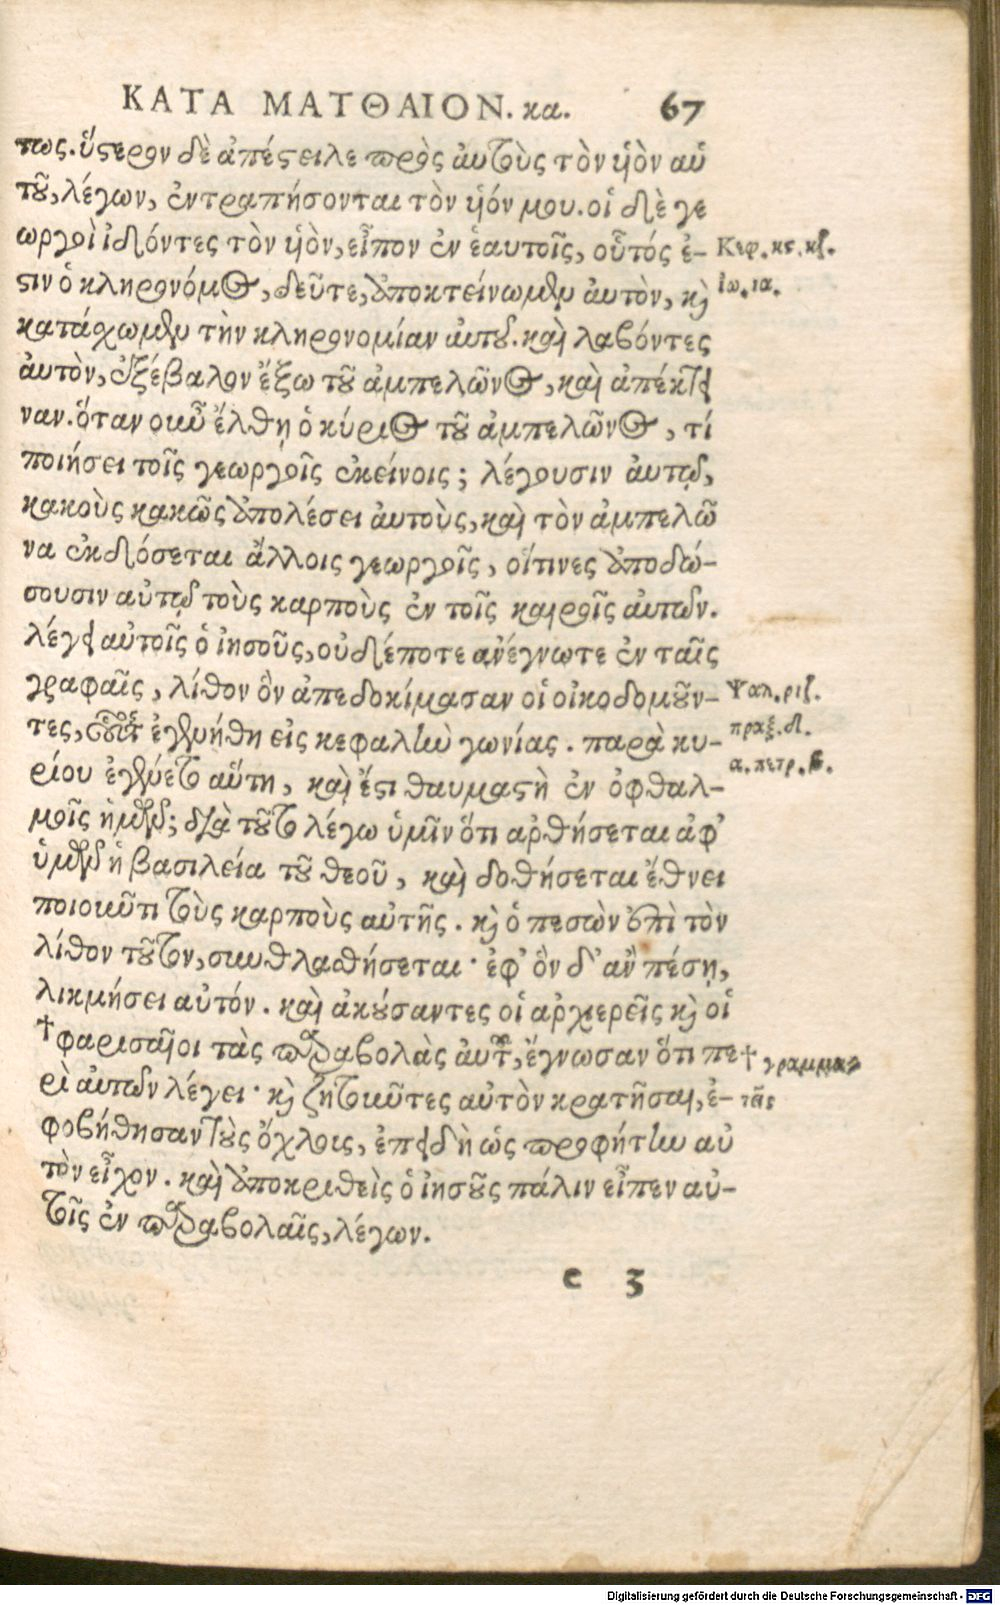 ΚΑΤΑ ΜΑΤΘΑΙΟΝ. κα. 67
πως. ὕστερον δὲ ἀπέστειλε πρὸς ἀυτοὺς τὸν ὑιὸν αὑ
τοῦ, λέγων, ἐντραπήσονται τὸν ὑιόν μου. οἱ δὲ γε
ωργοὶ ἰδόντες τὸν ὑιὸν, εἶπον ἐν ἑαυτοῖς, οὗτός ἐ-
στιν ὁ κληρονόμος, δεῦτε, ἀποκτείνωμεν ἀυτὸν, καὶ
κατάσχωμεν τὴν κληρονομίαν ἀυτοῦ. καὶ λαβόντες
ἀυτὸν, ἐξέβαλον ἔξω τοῦ ἀμπελῶνος, καὶ ἀπέκτει
ναν. ὅταν οὖν ἔλθῃ ὁ κύριος τοῦ ἀμπελῶνος, τί
ποιήσει τοῖς γεωργοῖς ἐκείνοις; λέγουσιν ἀυτῷ,
κακοὺς κακῶς ἀπολέσει ἀυτοὺς, καὶ τὸν ἀμπελῶ
να ἐκδόσεται ἄλλοις γεωργοῖς, οἵτινες ἀποδώ-
σουσιν αὐτῷ τοὺς καρποὺς ἐν τοῖς καιροῖς ἀυτῶν.
λέγει αὐτοῖς ὁ ἰησοῦς, οὐδέποτε ανέγνωτε ἐν ταῖς
γραφαῖς, λίθον ὃν ἀπεδοκίμασαν οἱ οἰκοδομοῦν-
τες, οὗτος ἐγενήθη εἰς κεφαλὴν γωνίας. παρὰ κυ-
ρίου ἐγένετο αὕτη, καὶ ἔστι θαυμαστὴ ἐν ὀφθαλ-
μοῖς ἡμῶν; διὰ τοῦτο λέγω ὑμῖν ὅτι αρθήσεται ἀφ’
ὑμῶν ἡ βασιλεία τοῦ θεοῦ, καὶ δοθήσεται ἔθνει
ποιοῦντι τοὺς καρποὺς αὐτῆς. καὶ ὁ πεσὼν ἐπὶ τὸν
λίθον τοῦτον, συνθλασθήσεται· ἐφ’ ὃν δ’ ἂν πέσῃ,
λικμήσει αὐτόν. καὶ ἀκούσαντες οἱ αρχιερεῖς καὶ οἱ
†φαρισαῖοι τὰς παραβολὰς ἀυτοῦ, ἔγνωσαν ὅτι πε
ρὶ ἀυτῶν λέγει· καὶ ζητοῦντες αὐτὸν κρατῆσαι, ἐ-
φοβήθησαν τοὺς ὄχλοις, ἐπειδὴ ὡς προφήτην αὐ
τὸν εἶχον. καὶ ἀποκριθεὶς ὁ ἰησοῦς πάλιν εἶπεν αὐ-
τοῖς ἐν παραβολαῖς, λέγων.
Κεφ. κς. κζ.
ἰω. ια.
Ψαλ. ριζ.
πραξ. δ.
α. πετρ. β.
† γραμμα-
τεῖς
e 3
Digitalisierung gefördert durch die Deutsche Forschungsgemeinschaft - DFG